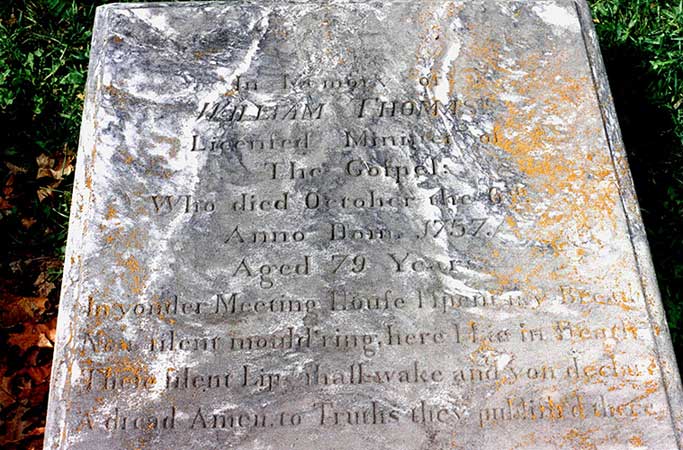 In Memory of
WILLIAM THOMAS
Licenſed Miniſter of
The Goſpel:
Who died October the 6th
Anno Dom. 1757.
Aged 79 Years
In yonder Meeting Houſe I ſpent my Breath
Now ſilent mould'ring, here I Lie in Death
Theſe ſilent Lips ſhall wake and yon declare
A dread Amen, to Truths they publiſh'd there